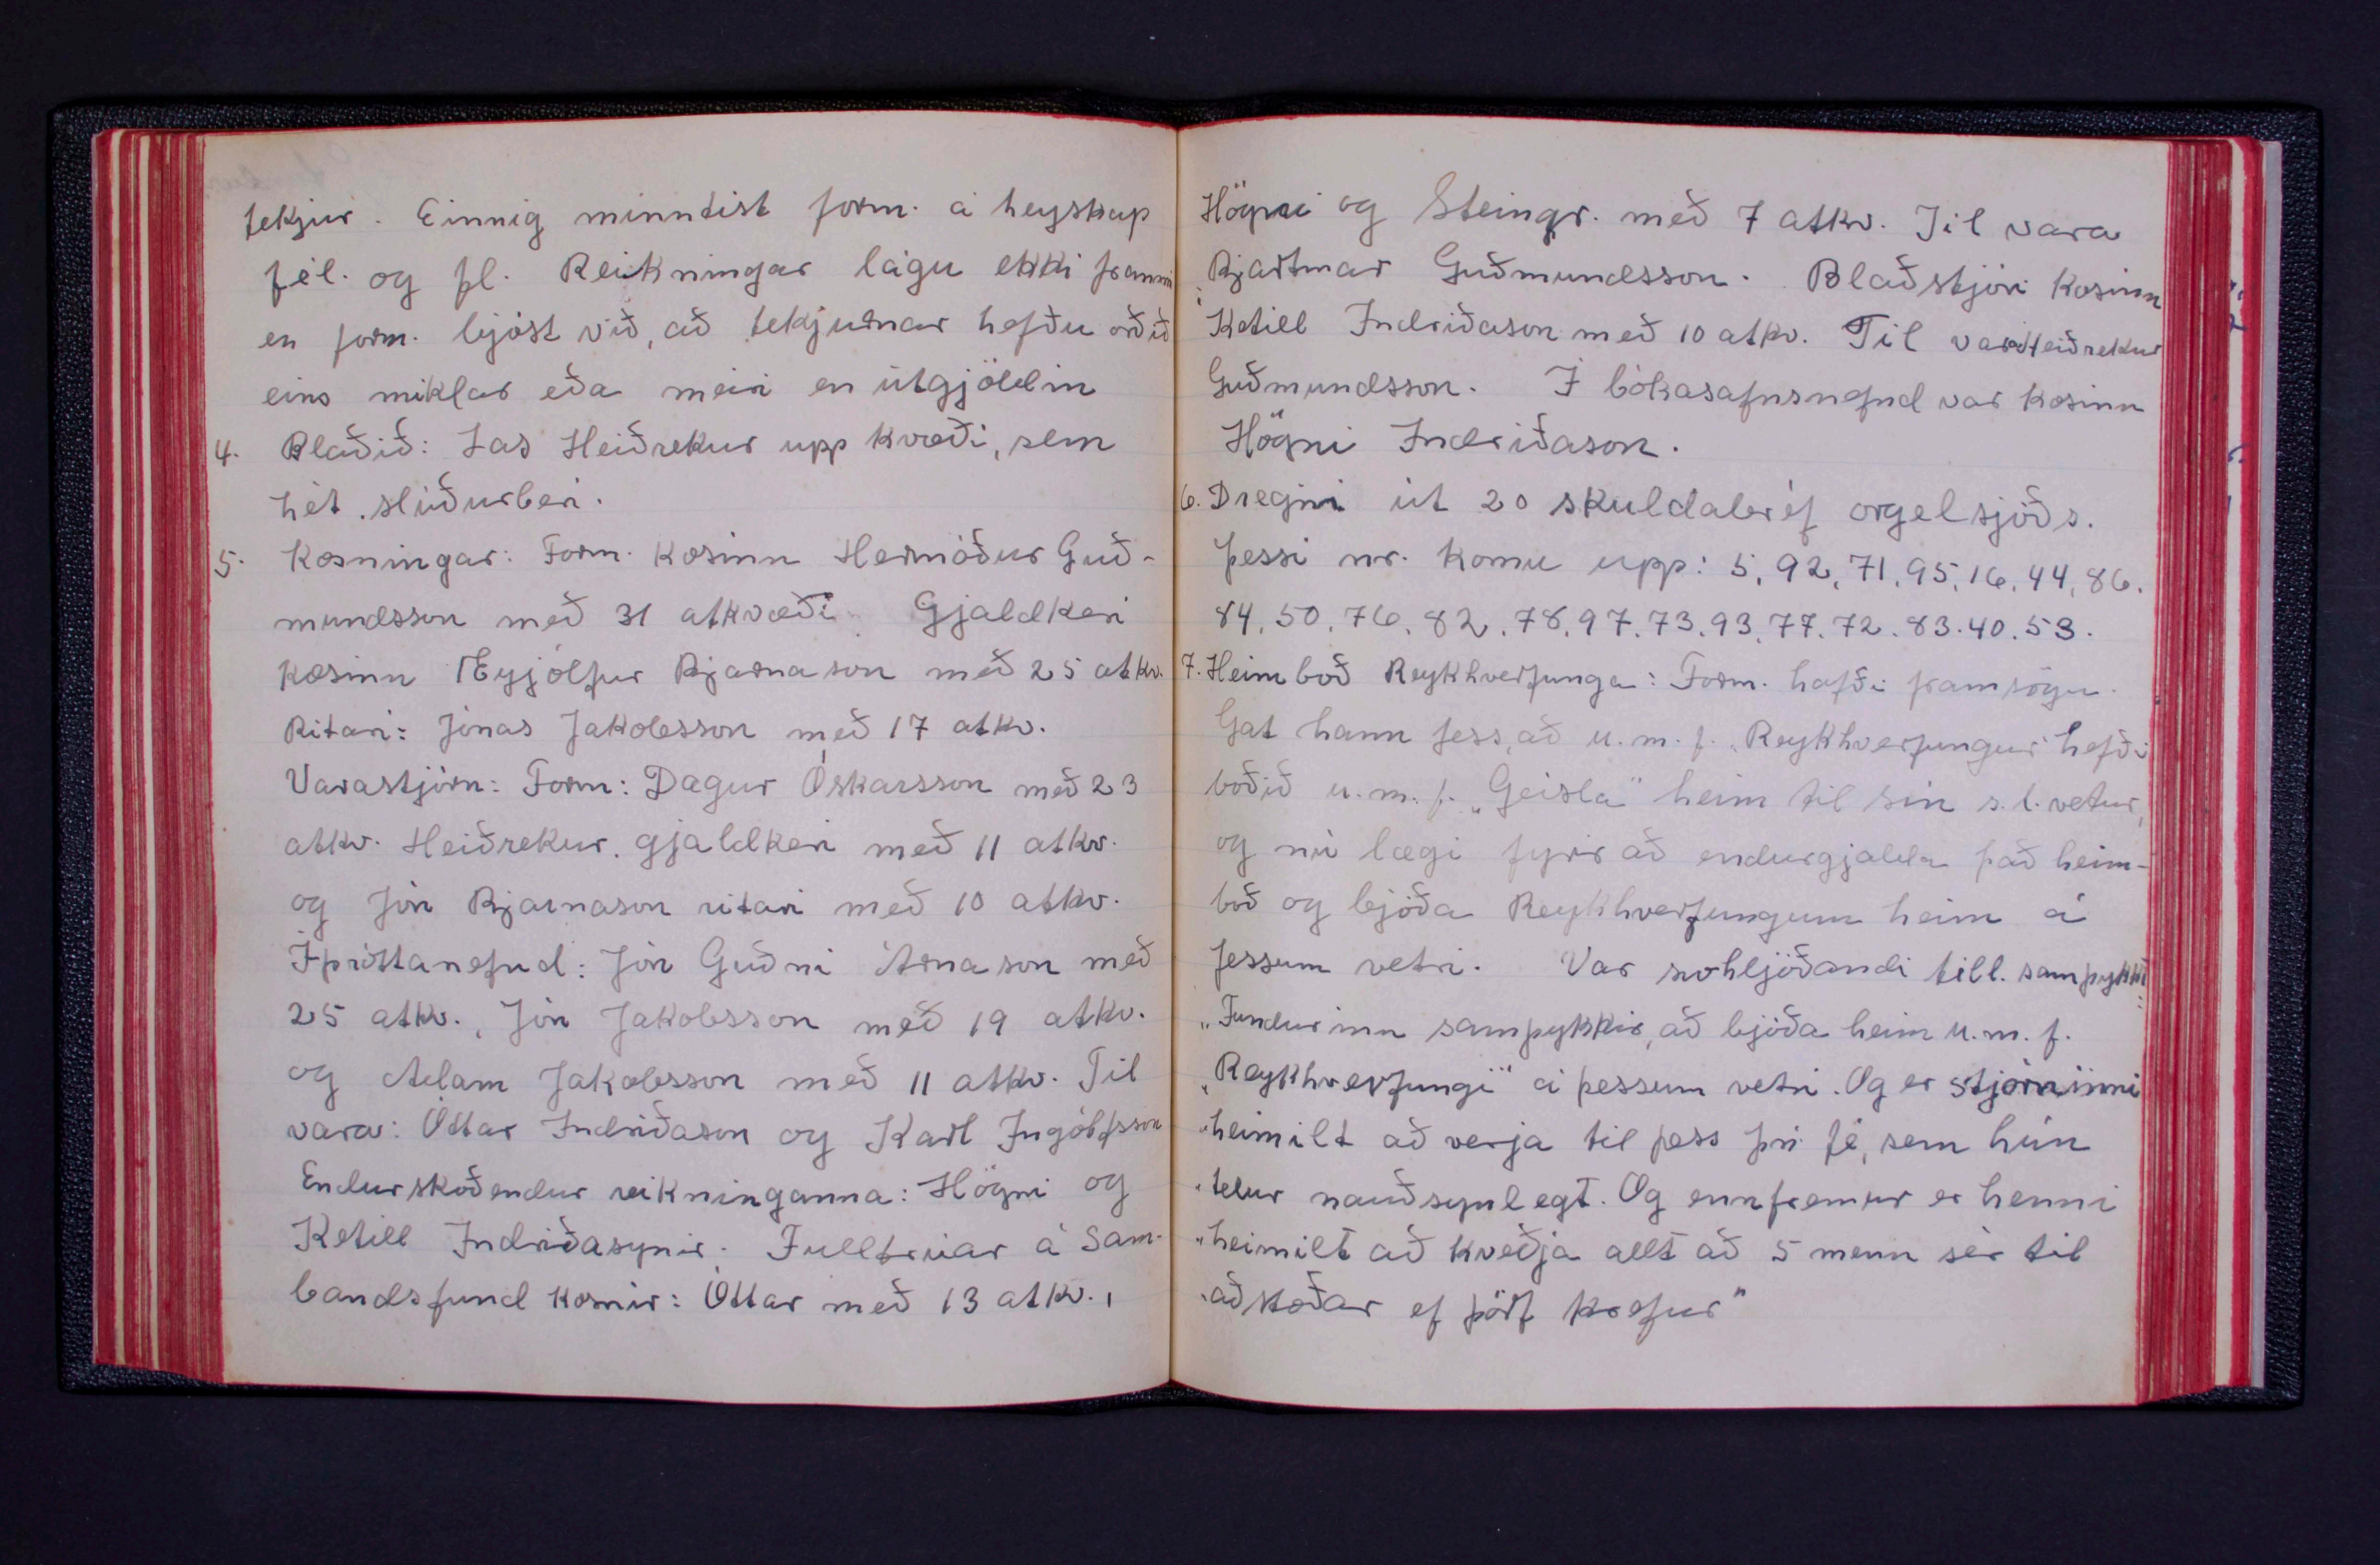 tekjur. Einnig minntist form. á heyskap
fél. og fl. Reikningar lágu ekki frammi
en form. bjóst við, að tekjurnar hefðu orðið
eins miklar eða meiri en útgjöldin
4. Blaðið: Las Heiðrekur upp kvæði, sem
hét sliðurberi.
5. Kosningar: Form. kosinn Hermóður Guð-
mundsson með 31 atkvæði. Gjaldkeri
kosinn Eyjólfur Bjarnason með 25 atkv.
Ritari: Jónas Jakobsson með 17 atkv.
Varastjórn: Form: Dagur Óskarsson með 23
atkv. Heiðrekur. gjaldkeri með 11 atkv.
og Jón Bjarnason ritari með 10 atkv.
Íþróttanefnd: Jón Guðni Árnason með
25 atkv., Jón Jakobsson með 19 atkv.
og Adam Jakobsson með 11 atkv. Til
vara: Óttar Indriðason og Karl Ingólfsson
Endurskoðendur reikninganna: Högni og
Ketill Indriðasynir. Fulltrúar á Sam-
bandsfund kosnir: Óttar með 13 atkv.,
Högni og Steingr. með 7 atkv. Til vara
Bjartmar Guðmundsson. Blaðstjóri kosinn
Ketill Indriðason með 10 atkv. Til vara Heiðrekur
Guðmundsson. Í bókasafnsnefnd var kosinn
Högni Indriðason.
6. Dregin út 20 skuldabréf orgelsjóðs.
Þessi nr. komu upp: 5, 92, 71, 95, 16, 44, 86.
84, 50, 76, 82, 78, 97. 73. 93, 77. 72. 83. 40. 53.
7. Heimboð Reykhverfunga: Form. hafði framsögu.
Gat hann þess, að u. m. f. „Reykhverfungur hefði
boðið u. m. f. „Geisla" heim til sín s. l. vetur,
og nú lægi fyrir að endurgjalda það heim-
boð og bjóða Reykhverfungum heim á
þessum vetri. Var svohljóðandi till. samþykkt:
„Fundurinn samþykkir, að bjóða heim u. m. f.
„Reykhverfungi" á þessum vetri. Og er stjórninni
„heimilt að verja til þess því fé, sem hún
„telur nauðsynlegt. Og ennfremur er henni
„heimilt að kveðja allt að 5 menn sér til
„aðstoðar ef þörf krefur"